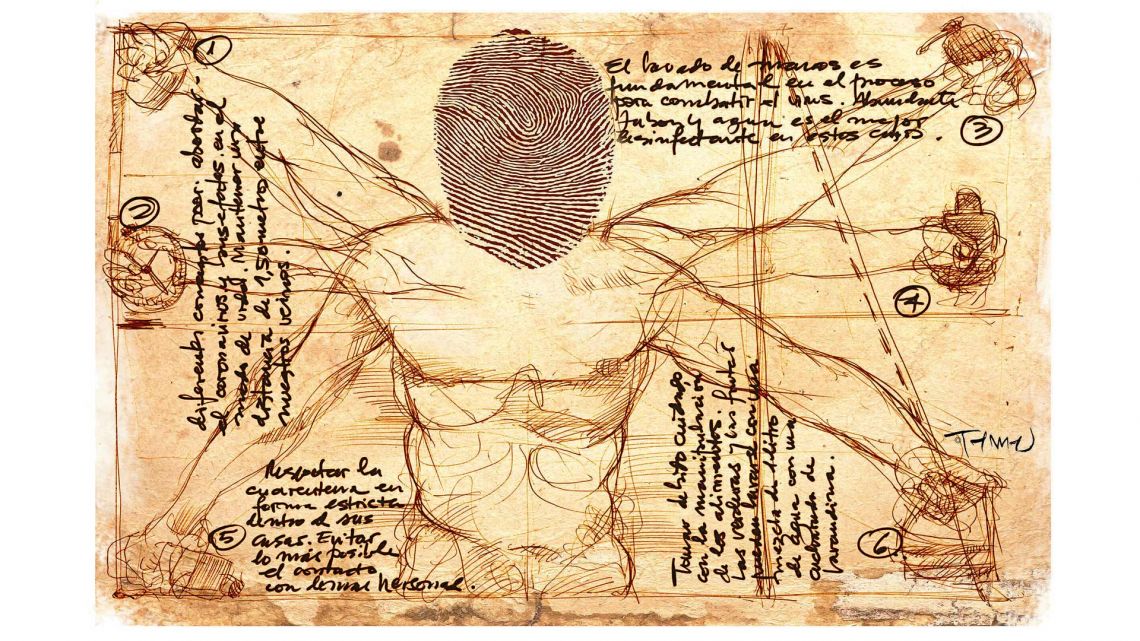 1
diferentes consejos para abortar
el coronavirus y sus efectos en el
modo de vida. Mantener una
distancia de 1,50 metros entre
nuestros vecinos.
El lavado de manos es
fundamental en el proceso
para combatir el virus. Abundante
Jabon y agua es el mejor
desinfectante en estos casos.
3
2
4
Tomar debito cuidado
con la manipulación
de los alimentos.
Las verduras y las frutas
pueden lavarse con una
mezcla de 1 litro
de agua con una
cucharada de
lavandina.
Respetar la
cuarentena en
forma estricta
dentro de sus
casas. Evitar
lo más posible
el contacto
con demas personas.
5
6